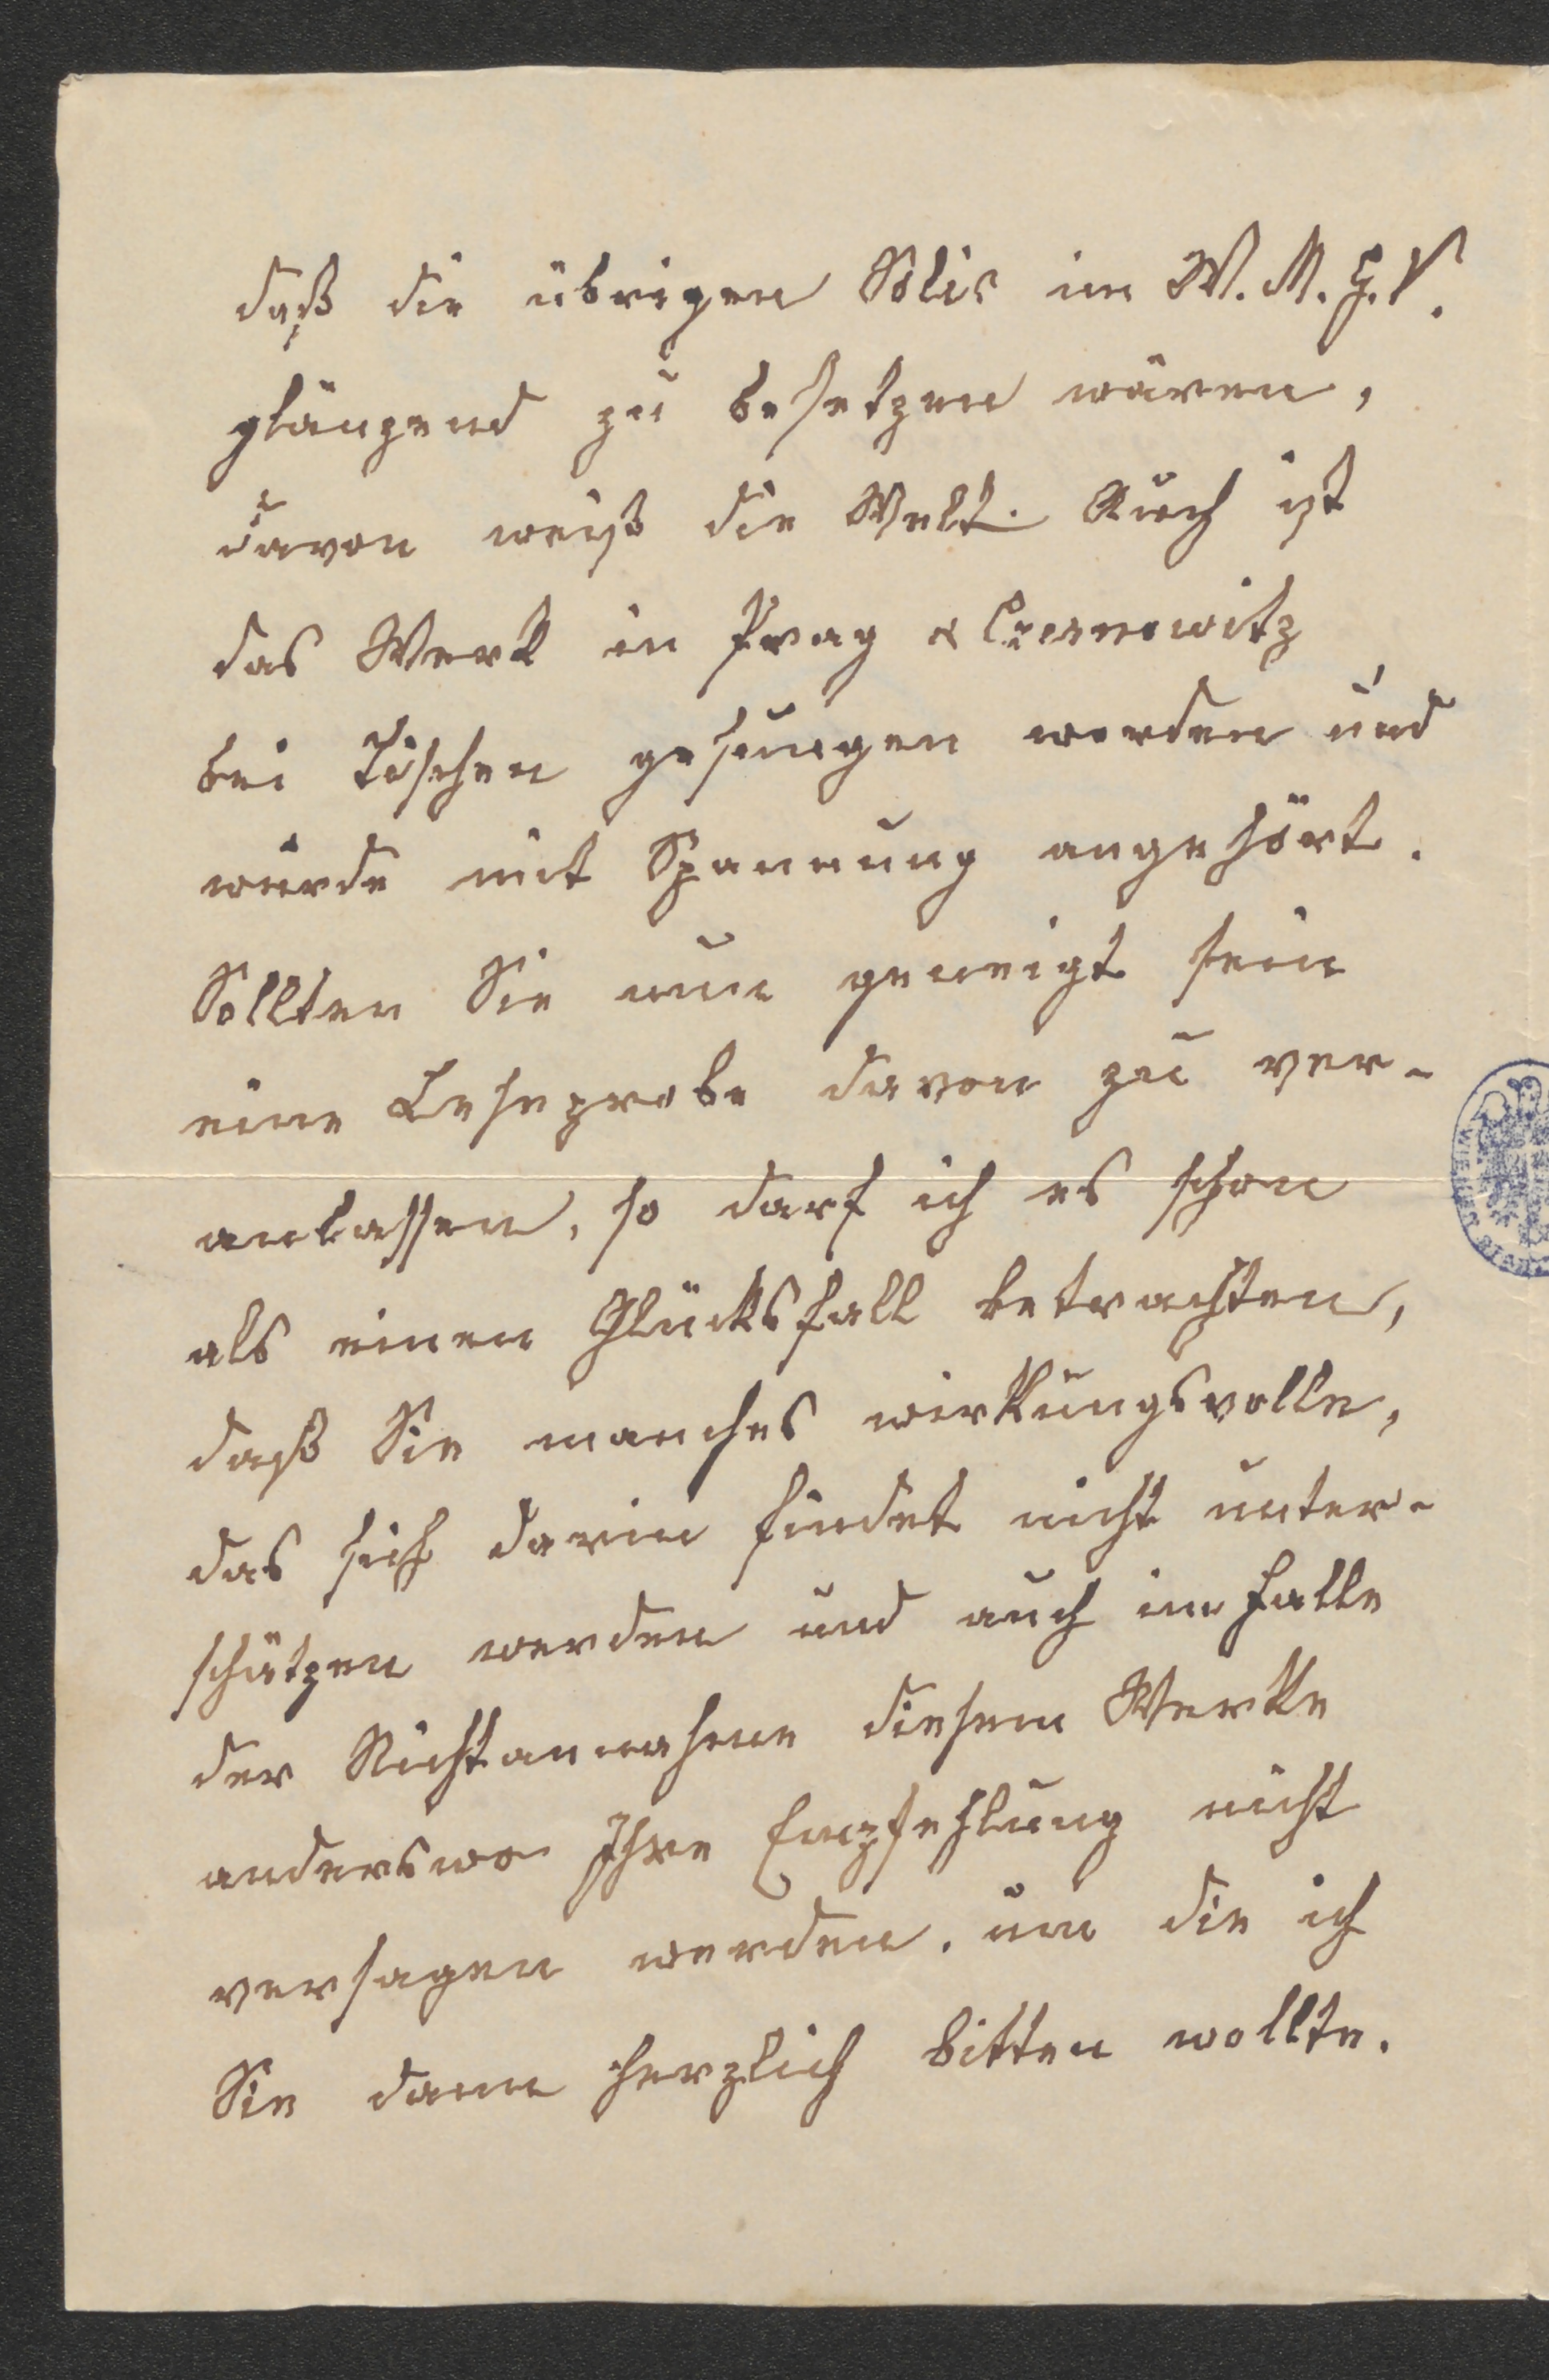 daß die übrigen Solis im W. M. G. V.
glänzend zu besetzen wären,
davon weiß die Welt. Auch ist
das Werk in Prag & Czernowitz
bei Tischen gesungen worden und
wurde mit Spannung angehört.
Sollten Sie nun geneigt sein
eine Leseprobe davon zu ver-
anlassen, so darf ich es schon
als einen Glücksfall betrachten,
daß Sie manches wirkungsvolle,
das sich darin findet nicht unter-
schätzen werden und auch im Falle
der Nichtannahme diesem Werke
anderswo Ihre Empfehlung nicht
versagen werden, um die ich
Sie dann herzlich bitten wollte.